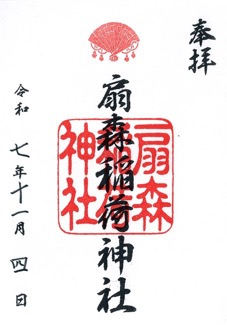 奉拝
扇森稲荷神社
扇森
稲荷
神社
令和 七年十一月 四日